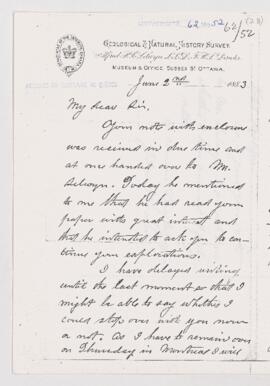 62/52
GEOLOGICAL & NATURAL HISTORY SURVEY
Alfred R.C. Selwyn LL.D., F.R.S. Director
MUSEUM & OFFICE, SUSSEX ST. OTTAWA.
June 2nd 1883
My dear Sir,
Your note with enclosure
was received in due time and
at once handed over to Mr.
Selwyn. Today he mentioned
to me that he had read your
paper with great interest and
that he intended to ask you to con-
tinue your explorations.
I have delayed writing
until the last moment so that I
might be able to say whether I
could stop over with you now
or not. As I have to remain over
on Thursday in Montreal I will